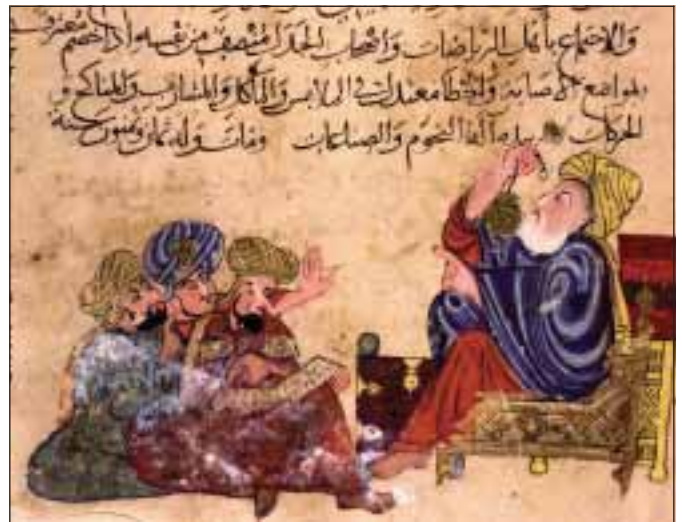 والاجتماع بأهل الرياضات وأصحاب الجدل منصف من نفسه اذا خصم معترف
بمواضع الاصابة والخطا معتدل في الملابس والمآكل والمشارب والمناكح و
الحركات بيده آلة النجوم والصناعات ومات وله ثمان وستون سنة